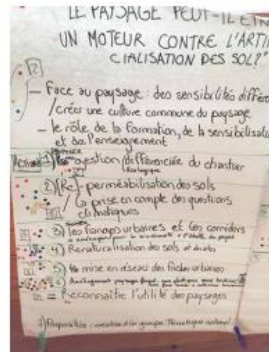 LE PAYSAGE PEUT-IL ETR
UN MOTEUR CONTRE L'ARTI
CIALISATION DES SOLS?
2
- Face au paysage : des sensibilités différe
/créer une culture commune du paysage
- le rôle de la formation, de la sensibilisa
et de l'enseignement
Actions 1) la gestion différenciée du chantier
écologique
2) (Re)-perméabilisation des sols
/la prise en compte des questions
climatiques
3) les franges urbaines et les corridors
4) Renaturalisation des sols
5) la mise en réseau des friches urbaines
6)
= Reconnaître l'utilité des paysages
Proposition : création d'un groupe Thématique national